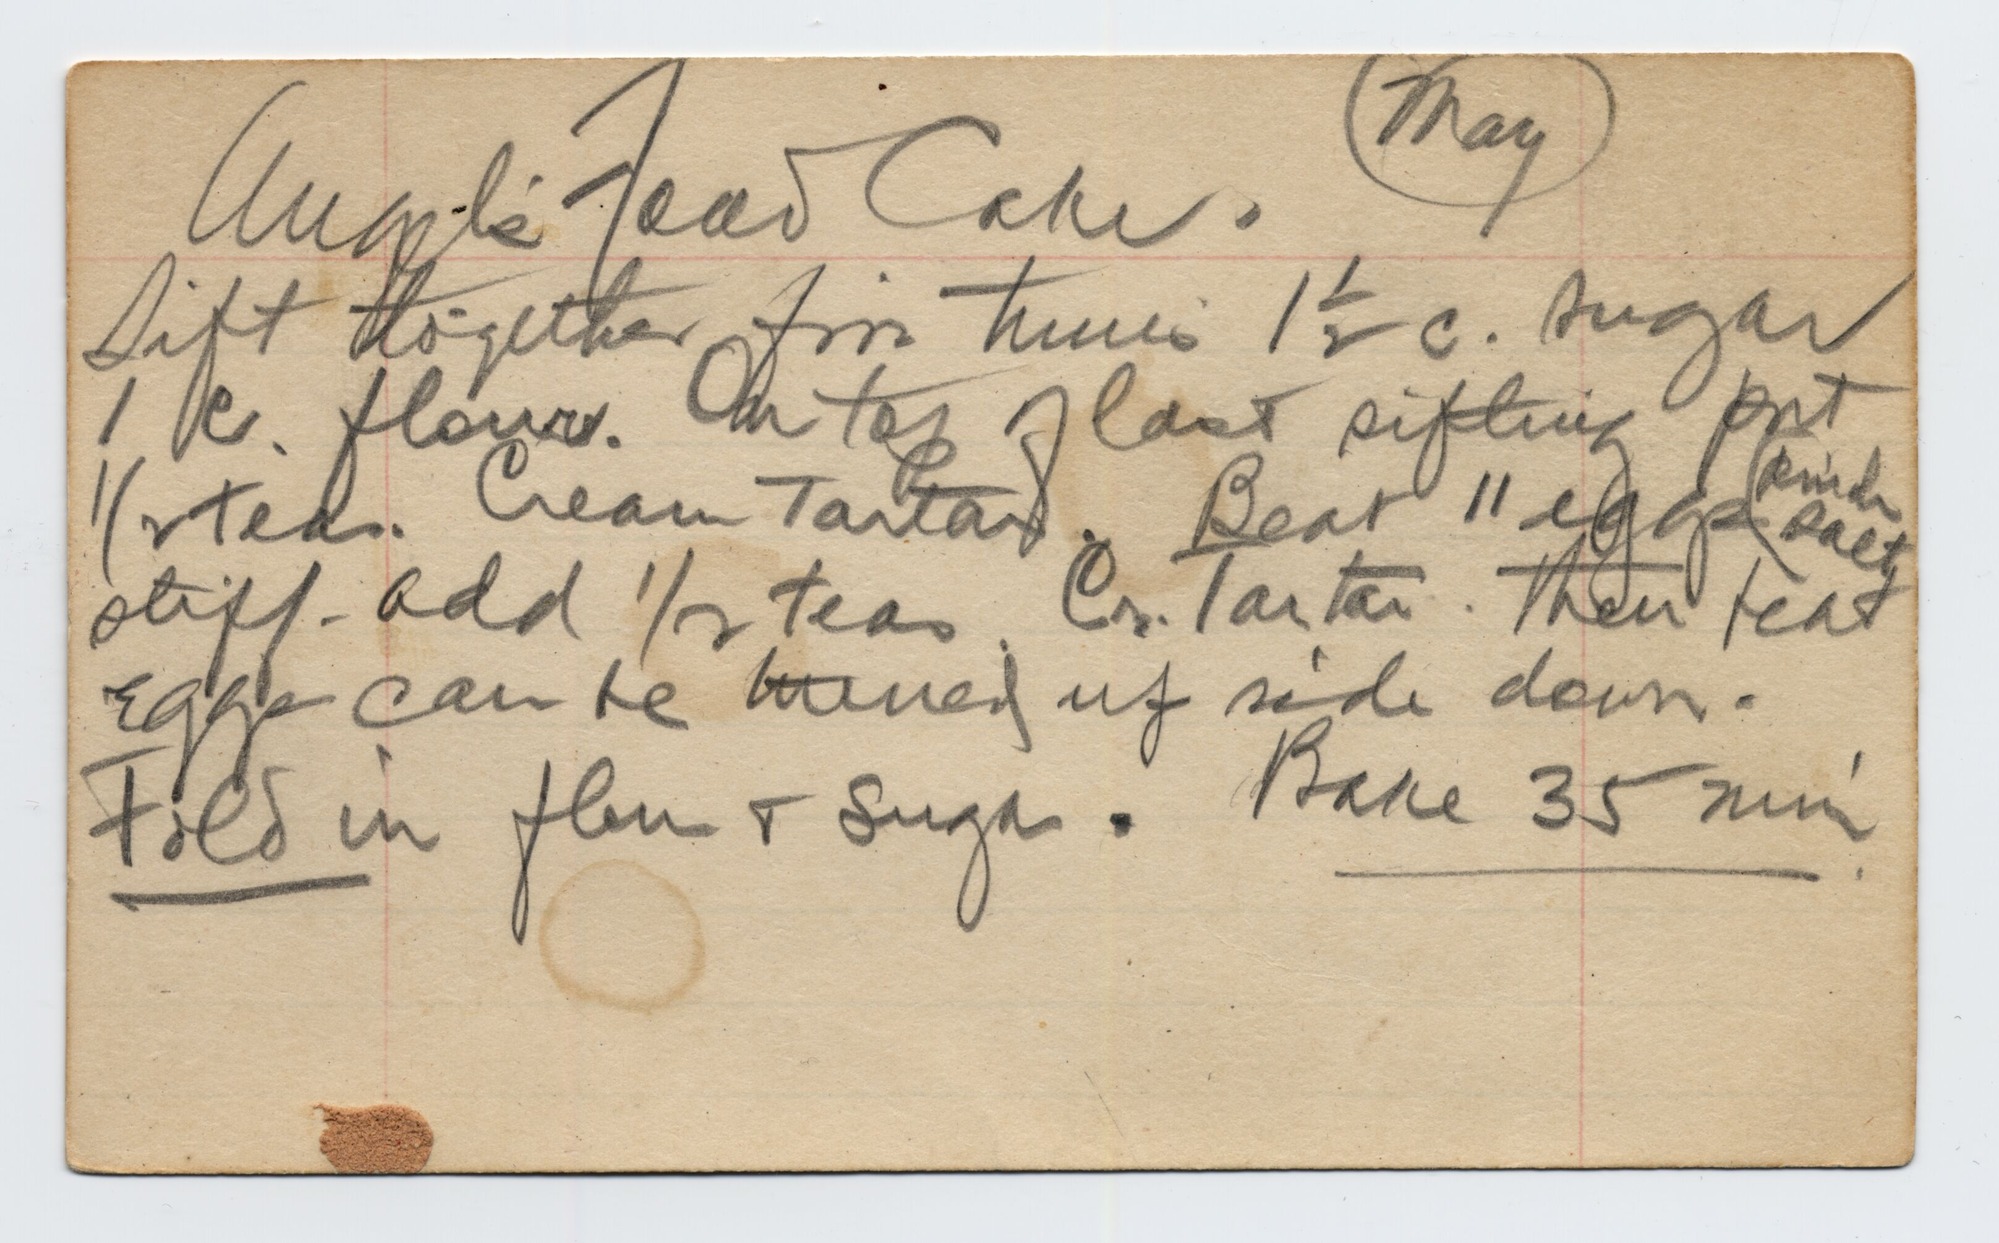 May
Angel's Food Cake.
Sift together five times 1 1/2 c. sugar
1 c. flour. On top of last sifting put
1/2 teas. Cream Tartar. Beat 11 eggs (pinch salt
stiff - add 1/2 teas. Cr. Tartar. Then beat
Eggs can be turned up side down.
Fold in flour + Sugar. Bake 35 min.